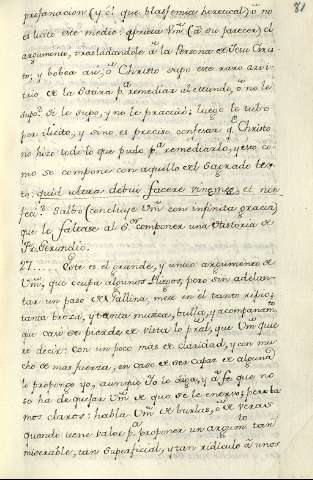 81
profanacion (y è! que blasfemia heretical) q̃ no
es licito este medio: aprieta Vm̃ (à su parecer) el
argumento, trasladandole à la Persona de Jesu Cris
to; y bobea asi, ò Christo supo este raro arvi
trio de la Satira pᵃ remediar al mundo, ò no le
supo. Si le supo, y no le practicó; luego le tubo
por ilicito, y sino es preciso confesar qᵉ Christo
no hizo todo lo que pudo pᵃ remediarlo, y eso co
mo se compone con aquello del Sagrado tex
to: quid ultra debui facere vineæ meæ, et non
feci? Salbo (concluye Vm̃ con infinita gracia)
que le faltase al Sᵒʳ componer una Historia de
Fr. Gerundio.
27..... Este es el grande, y unico argumento de
Vm̃, que ocupa algunos Pliegos, pero sin adelan
tar un paso de Gallina, mete en el tanto ripio;
tanta broza, y tanta musica, bulla, y acompañamᵗᵒ
que casi se pierde de vista lo pral, que Vm̃ quie
re decir: con un poco mas de claridad, y con mu
cho de mas fuerza, en caso de ser capaz de alguna
le propongo yo, aunque Yo lo diga, y à fe que no
se ha de quejar Vm̃ de que se le enervo; pero ha
mos claros: habla Vm̃ de burlas, ò de veras
quando tiene valor pᵃ proponer un argumᵗᵒ tan
miserable, tan superficial, y tan ridiculo à unos